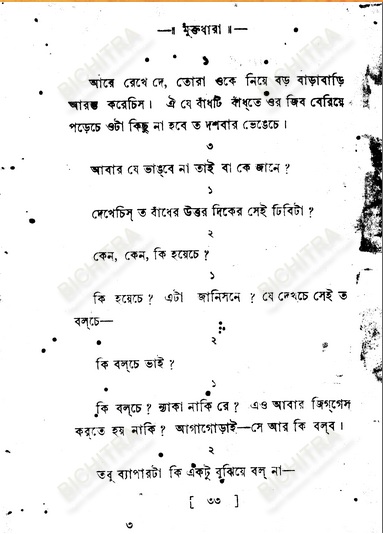 —॥ মুক্তধারা ॥—
১
আরে রেখে দে, তোরা ওকে নিয়ে বড় বাড়াবাড়ি
আরম্ভ করেচিস। ঐ যে বাঁধটি বাঁধ্‌তে ওর জিব বেরিয়ে
পড়েচে ওটা কিছু না হবে ত দশবার ভেঙেচে।
৩
আবার যে ভাঙ্‌বে না তাই বা কে জানে?
১
দেখেচিস্ ত বাঁধের উত্তর দিকের সেই ঢিবিটা?
২
কেন, কেন, কি হয়েচে?
১
কি হয়েচে? এটা জানিসনে? যে দেখচে সেই ত
বল্‌চে—
২
কি বল্‌চে ভাই?
১
কি বল্‌চে? ন্যাকা নাকি রে? এও আবার জিগ্‌গেস
কর্‌তে হয় নাকি? আগাগোড়াই—সে আর কি বল্‌ব।
২
তবু ব্যাপারটা কি একটু বুঝিয়ে বল্ না—
[ ৩৩ ]
৩
BICHITRA
BICHITRA
BICHITRA
BICHITRA
BICHITRA
BICHITRA